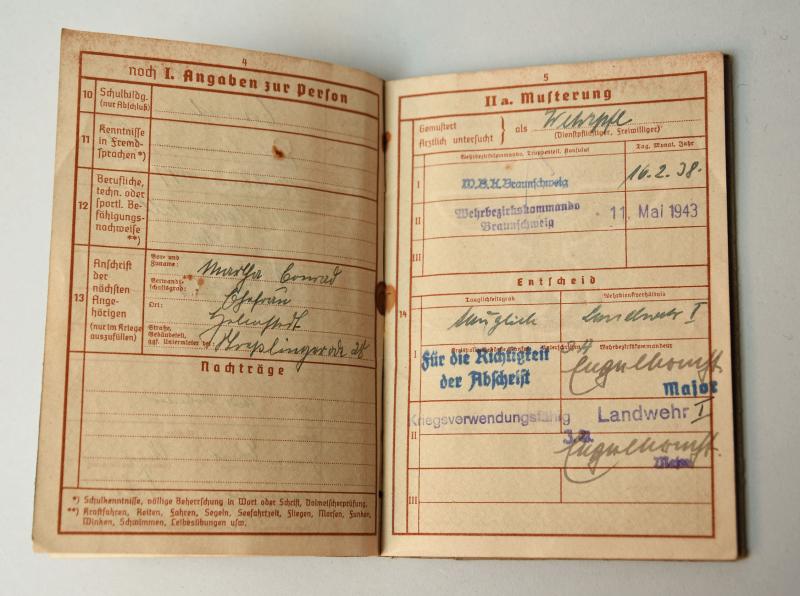 4
noch I. Angaben zur Person
10 Schulbildg. (nur Abschluß)
11 Kenntnisse in Fremd-
sprachen *)
12 Berufliche, techn. oder
sportl. Be-
fähigungs-
nachweise
**)
13 Anschrift der nächsten Ange-
hörigen
(nur im Kriege auszufüllen)
Vor- und Zuname: Martha Conrad
Verwandt-
schaftsgrad: Ehefrau
Ort: Helmstedt
Straße, Gebäudeteil, ggf. Untermieter bei:
Nachträge
*) Schulkenntnisse, völlige Beherrschung in Wort oder Schrift, Dolmetscherprüfung.
**) Kraftfahren, Reiten, Fahren, Segeln, Seefahrtzeit, Fliegen, Morsen, Funken,
Winken, Schwimmen, Leibesübungen usw.
5
II a. Musterung
Gemustert
Ärztlich untersucht } als Wehrpfl
(Dienstpflichtiger, Freiwilliger)
Wehrbezirkskommando, Truppenteil, Konsulat Tag, Monat, Jahr
I W.B.K. Braunschweig 16.2.38.
II Wehrbezirkskommando
Braunschweig 11. Mai 1943
III
Entscheid
14 Tauglichkeitsgrad Wehrdienstverhältnis
tauglich Landwehr I
I Wehrbezirkskommandeur
Für die Richtigkeit
der Abschrift
Major
Kriegsverwendungsfähig Landwehr I
II
Major
III